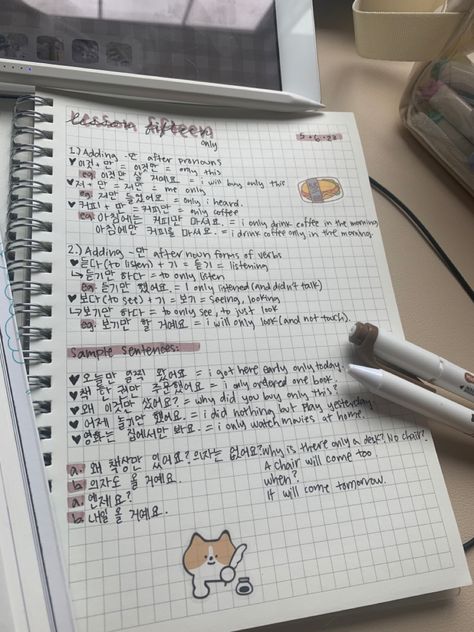 lesson fifteen
only
5.6.23
1.) Adding -만 after pronouns
♥ 이것 + 만 = 이것만 = only this
eg. 이것만 살 거예요. = i will buy only this.
♥ 저 + 만 = 저만 = me only
eg. 저만 들었어요. = only i heard.
♥ 커피 + 만 = 커피만 = only coffee
eg. 아침에는 커피만 마셔요. = i only drink coffee in the morning
아침에만 커피를 마셔요. = i drink coffee only in the morning.
2.) Adding -만 after noun forms of verbs
♥ 듣다 (to listen) + 기 = 듣기 = listening
↳ 듣기만 하다 = to only listen
eg. 듣기만 했어요. = I only listened (and didn't talk)
♥ 보다 (to see) + 기 = 보기 = seeing, looking
↳ 보기만 하다 = to only see, to just look
eg. 보기만 할 거예요. = i will only look (and not touch).
Sample Sentences:
♥ 오늘만 일찍 왔어요 = i got here early only today.
♥ 책 한 권만 주문했어요 = i only ordered one book.
♥ 왜 이것만 샀어요? = why did you buy only this?
♥ 어제 놀기만 했어요. = i did nothing but play yesterday.
♥ 영화는 집에서만 봐요. = i only watch movies at home.
a. 왜 책상만 있어요? 의자는 없어요? Why is there only a desk? No chair?
b. 의자도 올 거예요. A chair will come too
a. 언제요? when?
b. 내일 올 거예요. It will come tomorrow.